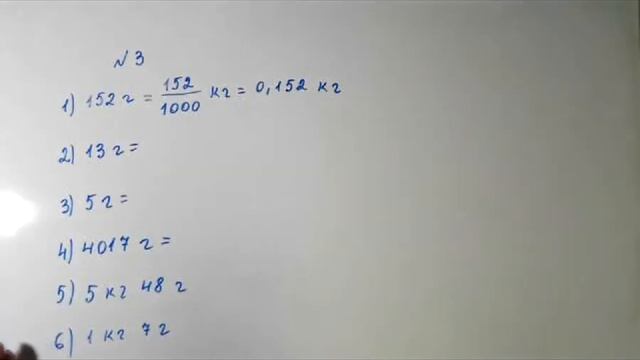 № 3
1) 152 г = 152/1000 кг = 0,152 кг
2) 13 г =
3) 5 г =
4) 4017 г =
5) 5 кг 48 г
6) 1 кг 7 г